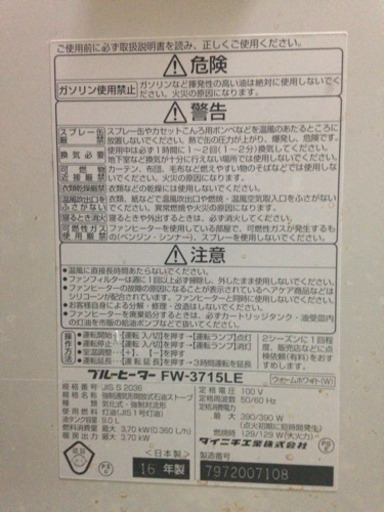 ご使用前に必ず取扱説明書を読み、正しくご使用ください。
危険
ガソリン使用禁止
ガソリンなど揮発性の高い油は絶対に使用しないでください。火災の原因になります。
警告
スプレー缶厳禁
スプレー缶やカセットこんろ用ボンベなどを温風のあたるところに放置しないでください。熱で缶の圧力が上がり、爆発し、危険です。
換気必要
使用中は必ず1時間に1〜2回(1〜2分)換気してください。
地下室など換気が十分に行えない場所では使用しないでください。
可燃物近接厳禁
カーテン、布団、毛布など燃えやすい物のそばなどでは使用しないでください。火災の原因になります。
衣類乾燥厳禁
衣類などの乾燥には使用しないでください。火災の原因になります。
温風吹出口をふさがない
衣類、紙などで温風吹出口・温風空気取入口をふさがないでください。異常燃焼や火災の原因になります。
寝るとき消火
寝るときや外出するときは、必ず消火してください。
可燃性ガス使用厳禁
ファンヒーターを使用している部屋で、可燃性ガスが発生するもの(ベンジン・シンナー)、スプレーを使用しないでください。
注意
●温風に直接長時間あたらないでください。
●ファンフィルターは週に1回以上必ず掃除し、外したまま使用しないでください。
●ファンヒーターの故障の原因になることが表示されているヘアケア商品などはシリコーンが配合されています。ファンヒーターと同時に使用しないでください。
●お客さまによる分解・修理・改造はしないでください。
●ファンヒーターを廃棄処分するときは、必ずカートリッジタンク・油受皿内の灯油を市販の給油ポンプなどで抜いてください。
操作方法
●運転開始…【運転 入/切】を押す→【運転ランプ】点灯
●運転停止…【運転 入/切】を押す→【運転ランプ】消灯
●室温調整…【+】、【−】を押す
●運転延長…【運転延長】を押す→3時間運転を延長
2シーズンに1回程度、販売店などに点検依頼(有料)をおすすめします。
ブルーヒーター FW-3715LE
ウォームホワイト(W)
規格番号 JIS S 2036
種類 強制通気形開放式石油ストーブ
気化式・強制対流形
使用燃料 灯油(JIS 1号灯油)
油タンク容量 9.0 L
燃料消費量 最大 3.70 kW(0.360 L/h)
暖房出力 最大 3.70 kW
定格電圧 100 V
定格周波数 50/60 Hz
定格消費電力
最大 390/390 W
(点火初期に短時間発生)
燃焼時 129/129 W(大火力)
<日本製>
16 年製
ダイニチ工業株式会社
7972007108